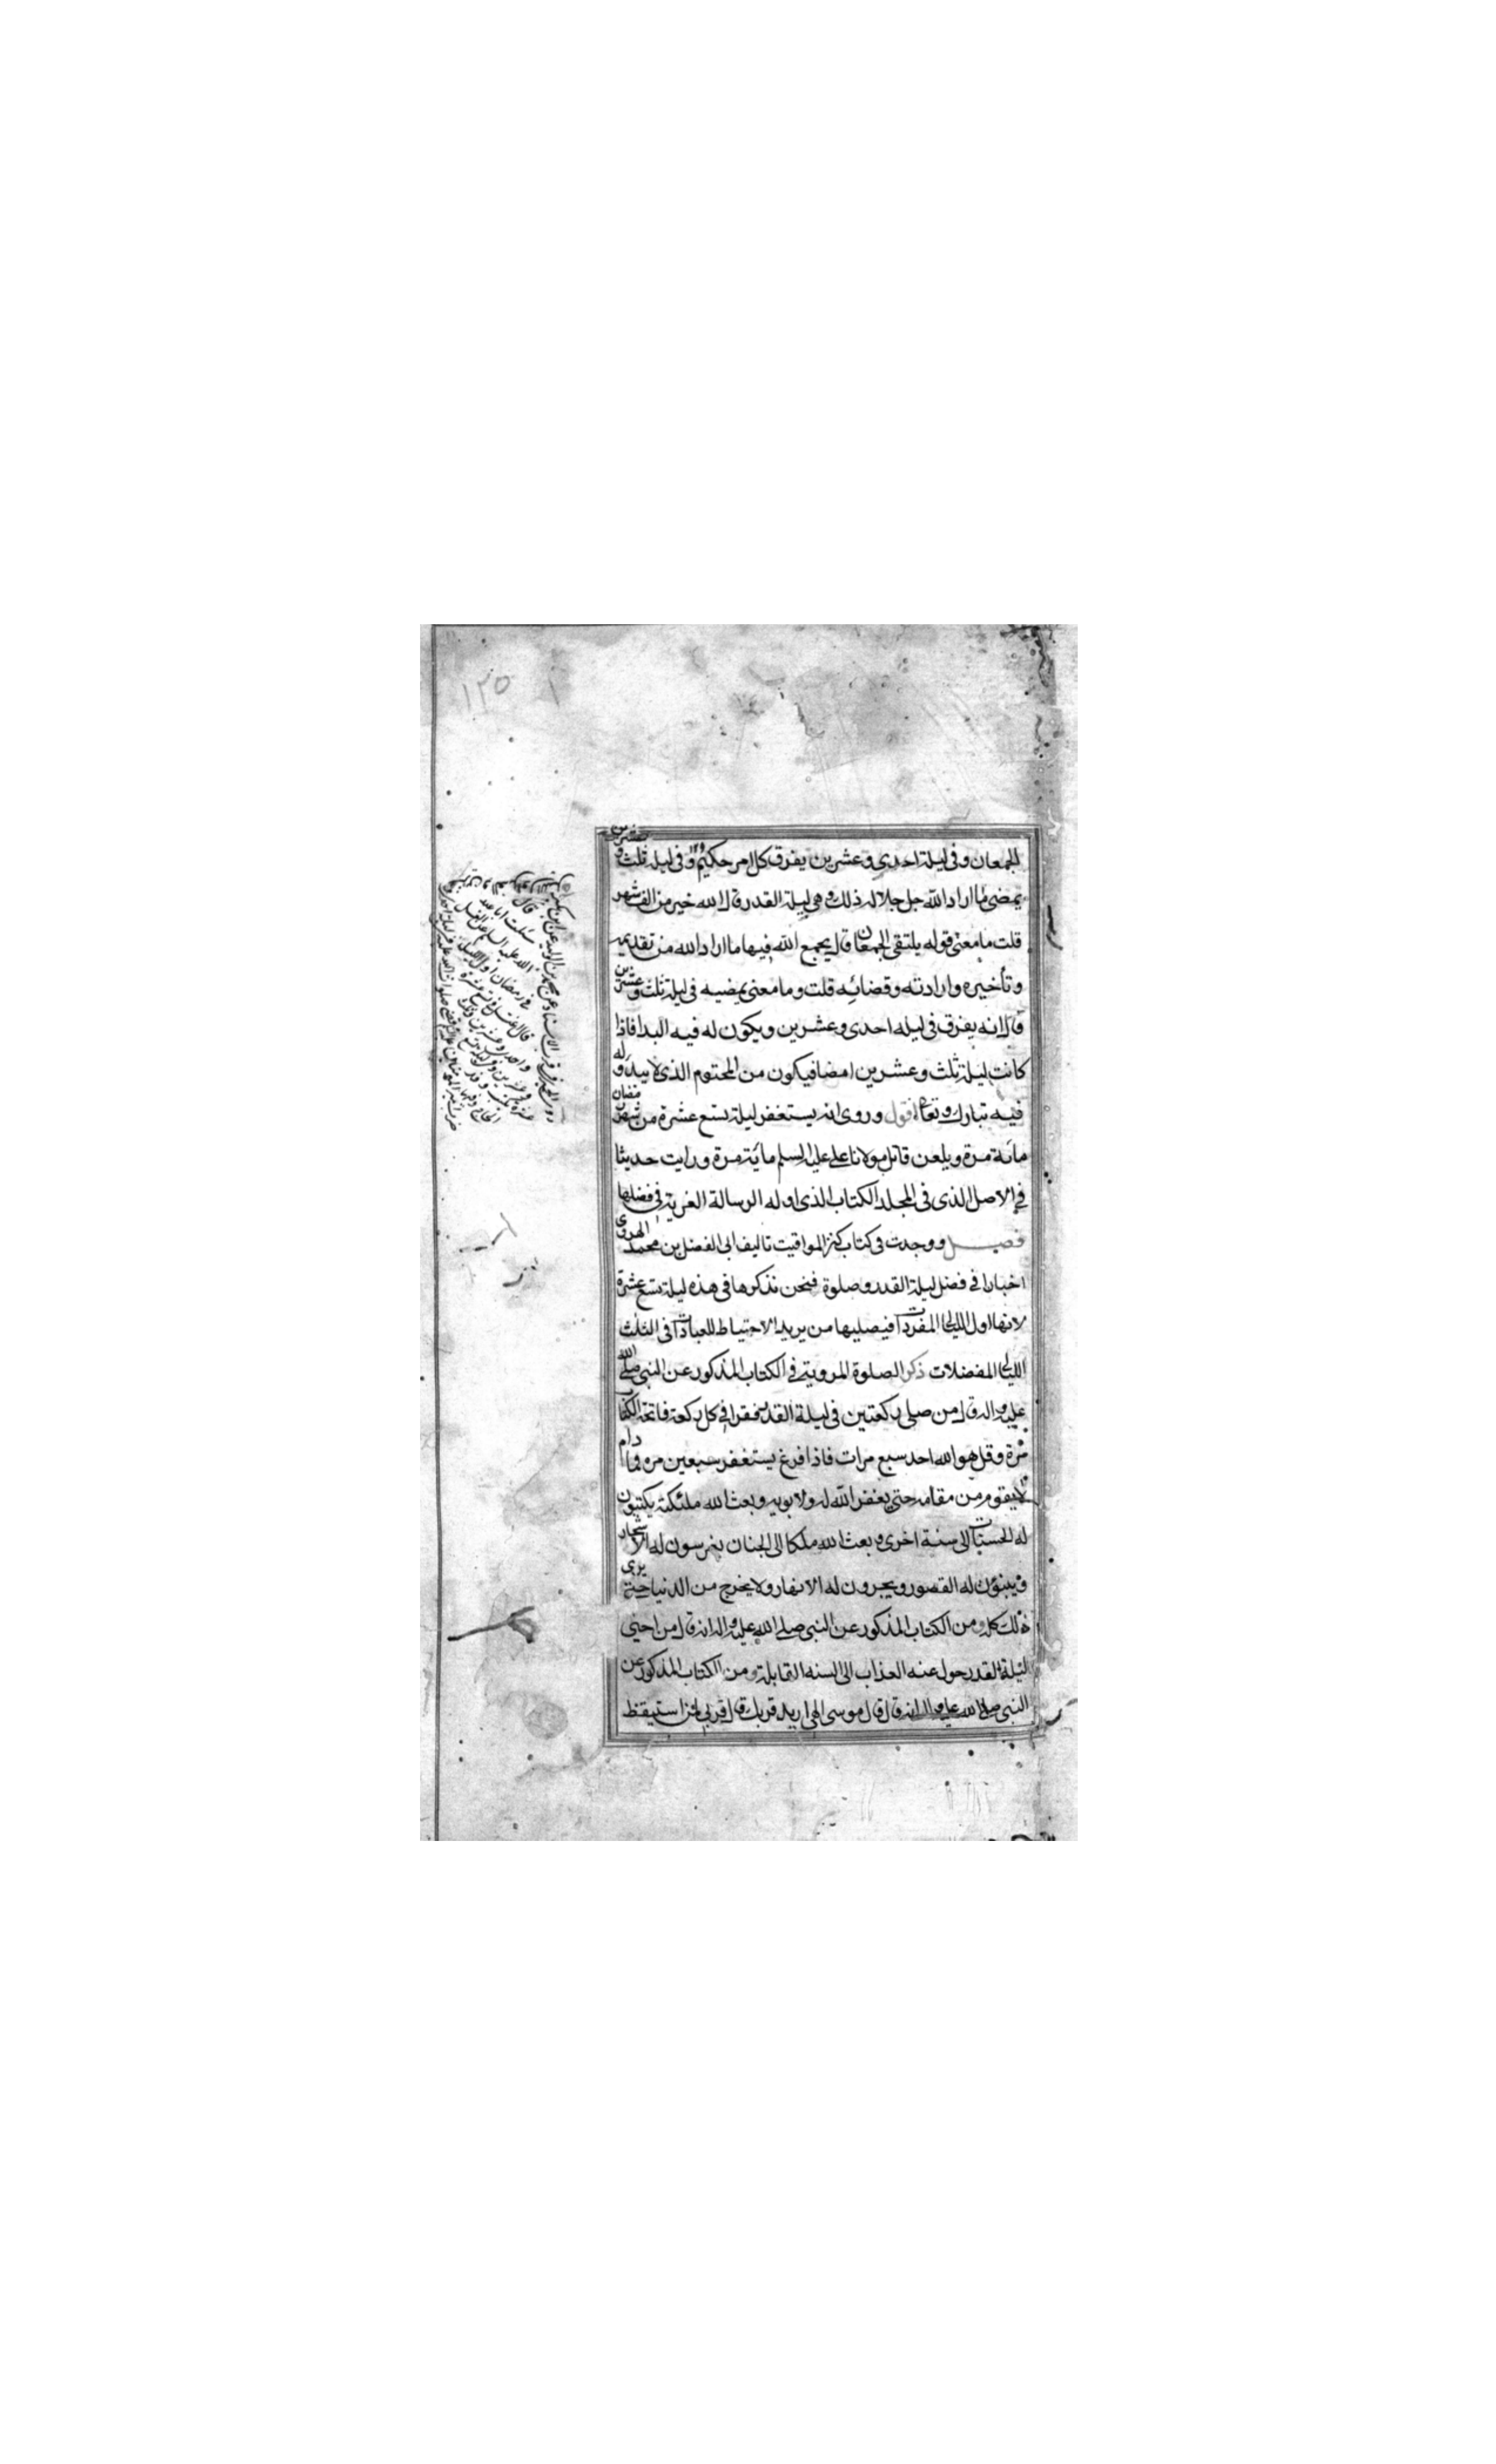 ١٢٥
الجمعان وفى ليلة احدى وعشرين يفرق كل امر حكيم وفى ليلة ثلث وعشرين
يمضى ما اراد الله جل جلاله ذلك وهى ليلة القدر قال الله خير من الف شهر
قلت ما معنى قوله يلتقى الجمعان قال يجمع الله فيها ما اراد الله من تقديمه
وتأخيره وارادته وقضائه قلت وما معنى يمضيه فى ليلة ثلث وعشرين
قال انه يفرق فى ليله احدى وعشرين ويكون له فيه البدا فاذا
كانت ليلة ثلث وعشرين امضا فيكون من المحتوم الذى لا يبدو له
فيه تبارك وتعالى اقول وروى انه يستغفر ليلة تسع عشرة من شهر رمضان
مائة مرة ويلعن قاتل مولانا على عليه السلم مائة مرة ورايت حديثا
فى الاصل الذى فى المجلد الكتاب الذى اوله الرسالة الغرية فى فضلها
فصل ووجدت فى كتاب كنز المواقيت تاليف ابى الفضل بن محمد الهروى
اخبارا فى فضل ليلة القدر وصلوة فنحن نذكرها فى هذه ليلة تسع عشرة
لانها اول الليالى المفردات فيصليها من يريد الاحتياط للعبادات فى الثلث
الليالى المفضلات ذكر الصلوة المروية فى الكتاب المذكور عن النبى صلى الله
عليه واله قال من صلى ركعتين فى ليلة القدر فقرا فى كل ركعة فاتحة الكتاب
مرة وقل هو الله احد سبع مرات فاذا فرغ يستغفر سبعين مره فما دام
لا يقوم من مقامه حتى يغفر الله له ولابويه وبعث الله ملئكة يكتبون
له الحسنات الى سنة اخرى وبعث الله ملكا الى الجنان يغرسون له الاشجار
ويبنون له القصور ويجرون له الانهار ولا يخرج من الدنيا حتى يرى
ذلك كله ومن الكتاب المذكور عن النبى صلى الله عليه واله انه قال من احيى
ليلة القدر حول عنه العذاب الى السنه القابلة ومن الكتاب المذكور عن
النبى صلى الله عليه واله انه قال قال موسى الهى اريد قربك قال قربى لمن استيقظ